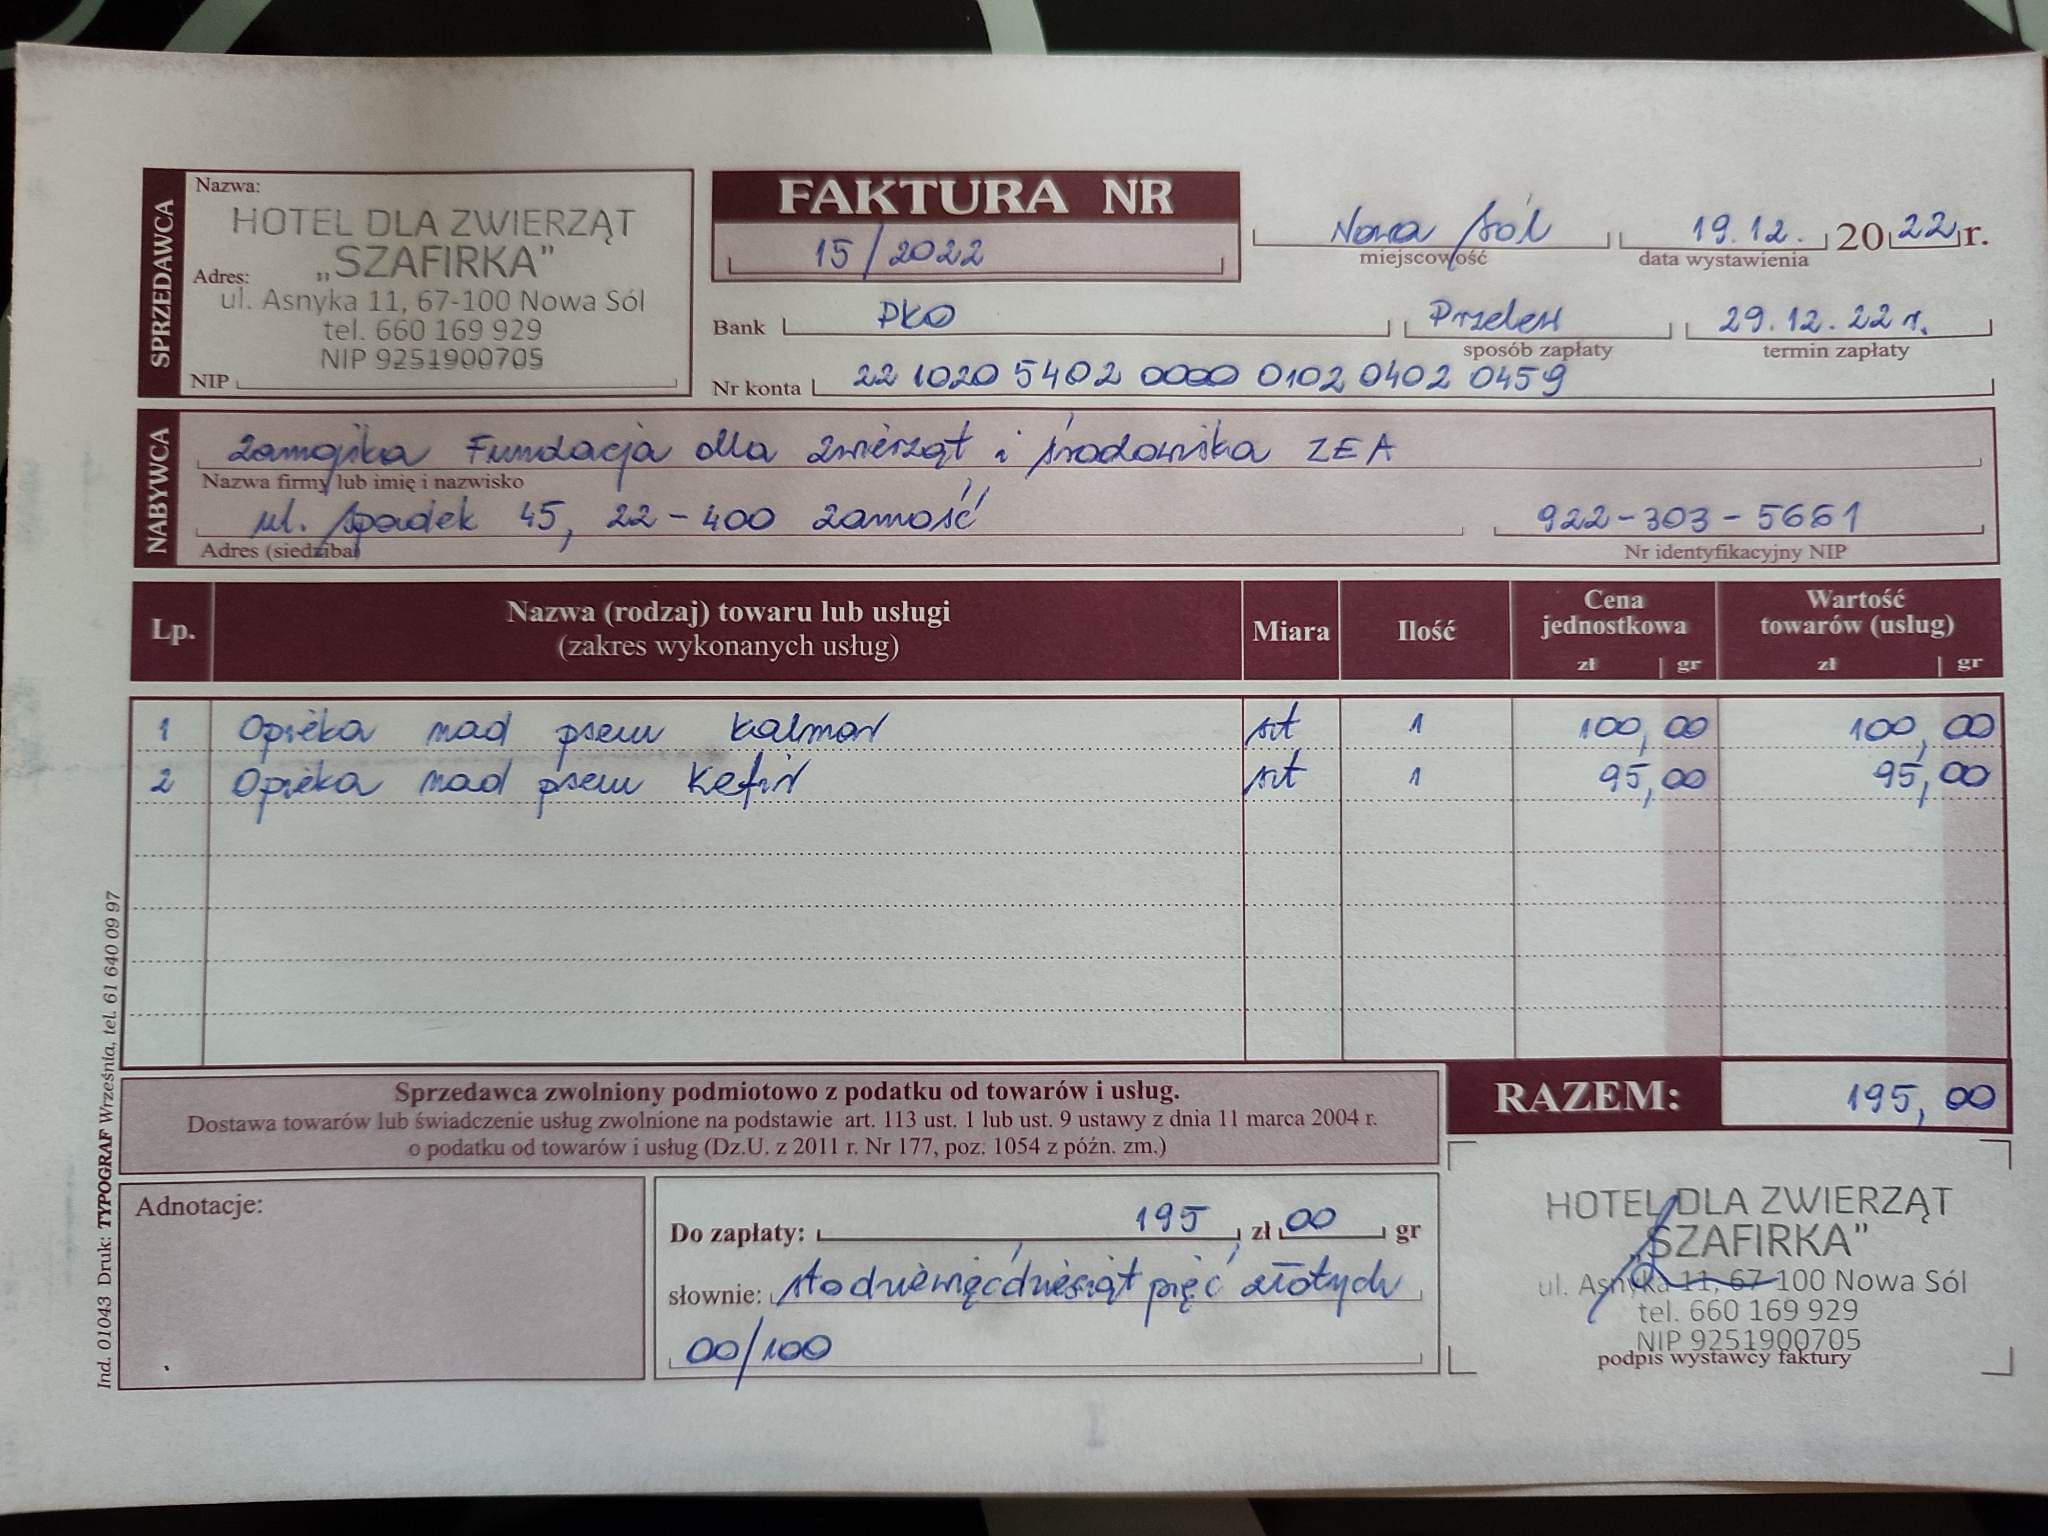 SPRZEDAWCA
Nazwa:
HOTEL DLA ZWIERZĄT
„SZAFIRKA”
Adres:
ul. Asnyka 11, 67-100 Nowa Sól
tel. 660 169 929
NIP 9251900705
NIP
FAKTURA NR
15/2022
Nowa Sól
miejscowość
19.12. 2022 r.
data wystawienia
Bank PKO
Przelew
sposób zapłaty
29.12.22 r.
termin zapłaty
Nr konta 22 1020 5402 0000 0102 0402 0459
NABYWCA
Zamojska Fundacja dla Zwierząt i Środowiska ZEA
Nazwa firmy lub imię i nazwisko
ul. Spadek 45, 22-400 Zamość
Adres (siedziba)
922-303-5661
Nr identyfikacyjny NIP
Lp. Nazwa (rodzaj) towaru lub usługi (zakres wykonanych usług) Miara Ilość Cena jednostkowa zł gr Wartość towarów (usług) zł gr
1 Opieka nad psem Kalmar szt 1 100,00 100,00
2 Opieka nad psem Kefir szt 1 95,00 95,00
Sprzedawca zwolniony podmiotowo z podatku od towarów i usług.
Dostawa towarów lub świadczenie usług zwolnione na podstawie art. 113 ust. 1 lub ust. 9 ustawy z dnia 11 marca 2004 r.
o podatku od towarów i usług (Dz.U. z 2011 r. Nr 177, poz. 1054 z późn. zm.)
RAZEM: 195,00
Adnotacje:
Do zapłaty: 195 zł 00 gr
słownie: sto dziewięćdziesiąt pięć złotych
00/100
HOTEL DLA ZWIERZĄT
„SZAFIRKA”
ul. Asnyka 11, 67-100 Nowa Sól
tel. 660 169 929
NIP 9251900705
podpis wystawcy faktury
Ind. 01043 Druk: TYPOGRAF Września, tel. 61 640 09 97